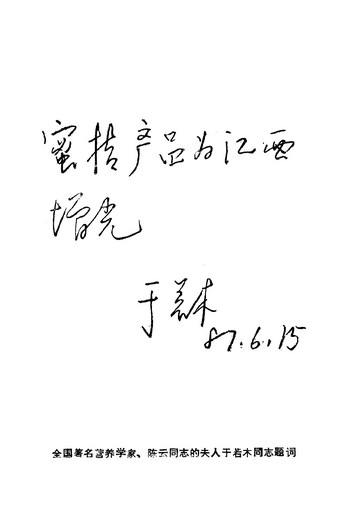 蜜桔产品为江西
增光
于若木
87.6.15
全国著名营养学家、陈云同志的夫人于若木同志题词